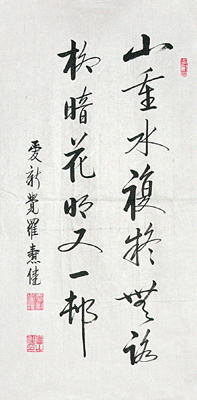 山重水複疑無路
柳暗花明又一邨
愛新覺羅燾佳